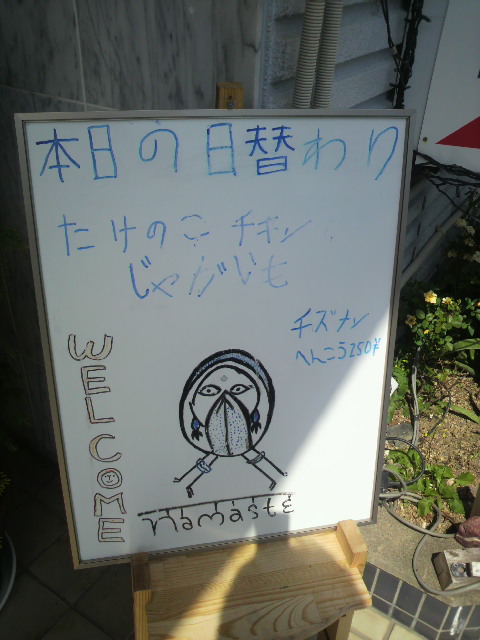 本日の日替わり
たけのこ チキン
じゃがいも
チズナン
へんこう250¥
WELCOME
namaste